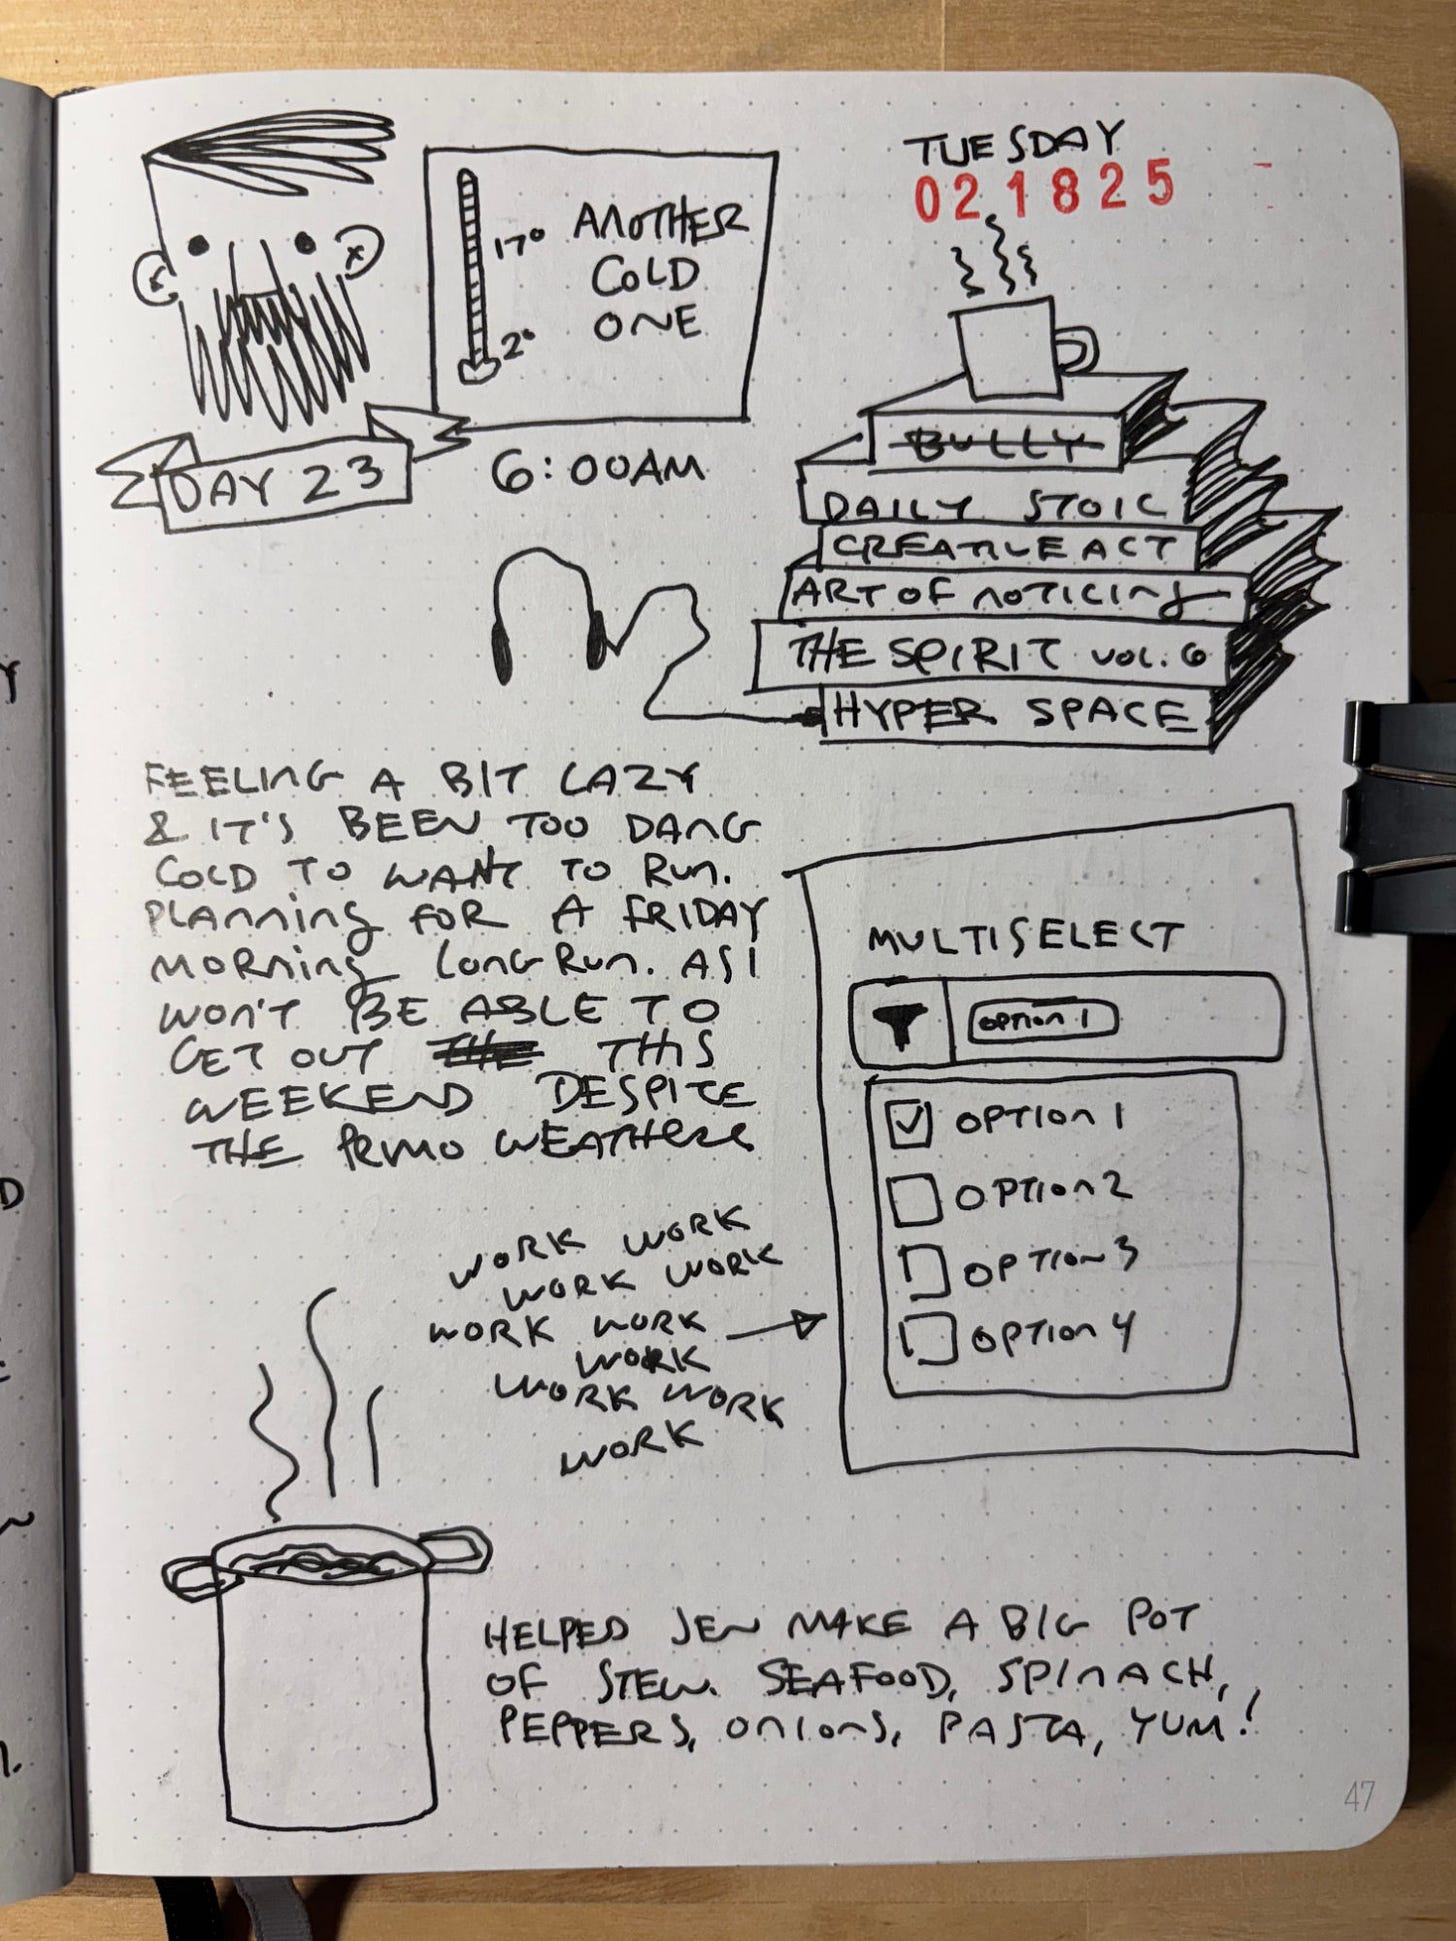 TUESDAY
021825
17° ANOTHER
COLD
2° ONE
DAY 23
6:00AM
BULLY
DAILY STOIC
CREATIVE ACT
ART OF NOTICING
THE SPIRIT VOL. 6
HYPER SPACE
FEELING A BIT LAZY
& IT'S BEEN TOO DANG
COLD TO WANT TO RUN.
PLANNING FOR A FRIDAY
MORNING LONG RUN. AS I
WON'T BE ABLE TO
GET OUT THE THIS
WEEKEND DESPITE
THE PRIMO WEATHER
MULTISELECT
OPTION 1
OPTION 1
OPTION 2
OPTION 3
OPTION 4
WORK WORK
WORK WORK
WORK WORK
WORK
WORK WORK
WORK
HELPED JEN MAKE A BIG POT
OF STEW. SEAFOOD, SPINACH,
PEPPERS, ONIONS, PASTA, YUM!
47